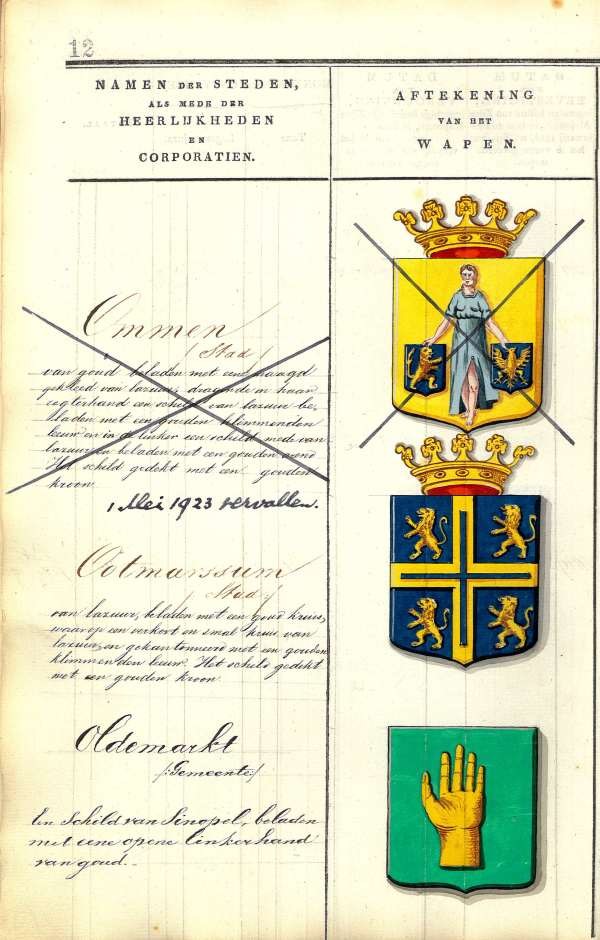 12
NAMEN DER STEDEN,
ALS MEDE DER
HEERLIJKHEDEN
EN
CORPORATIEN.
AFTEKENING
VAN HET
WAPEN.
Ommen
/Stad/
van goud beladen met een maagd
gekleed van lazuur, dragende in haar
regterhand een schild van lazuur be-
laden met een gouden klimmenden
leeuw en in de linker een schild mede van
lazuur en beladen met een gouden arend
Het schild gedekt met een gouden
kroon.
1 Mei 1923 vervallen.
Ootmarssum
/Stad/
van lazuur, beladen met een goud kruis,
waarop een verkort en smal kruis van
lazuur, en gekantonneerd met een gouden
klimmenden leeuw. Het schild gedekt
met een gouden kroon
Oldemarkt
/:Gemeente:/
Een Schild van Sinopel, beladen
met eene opene linkerhand
van goud.